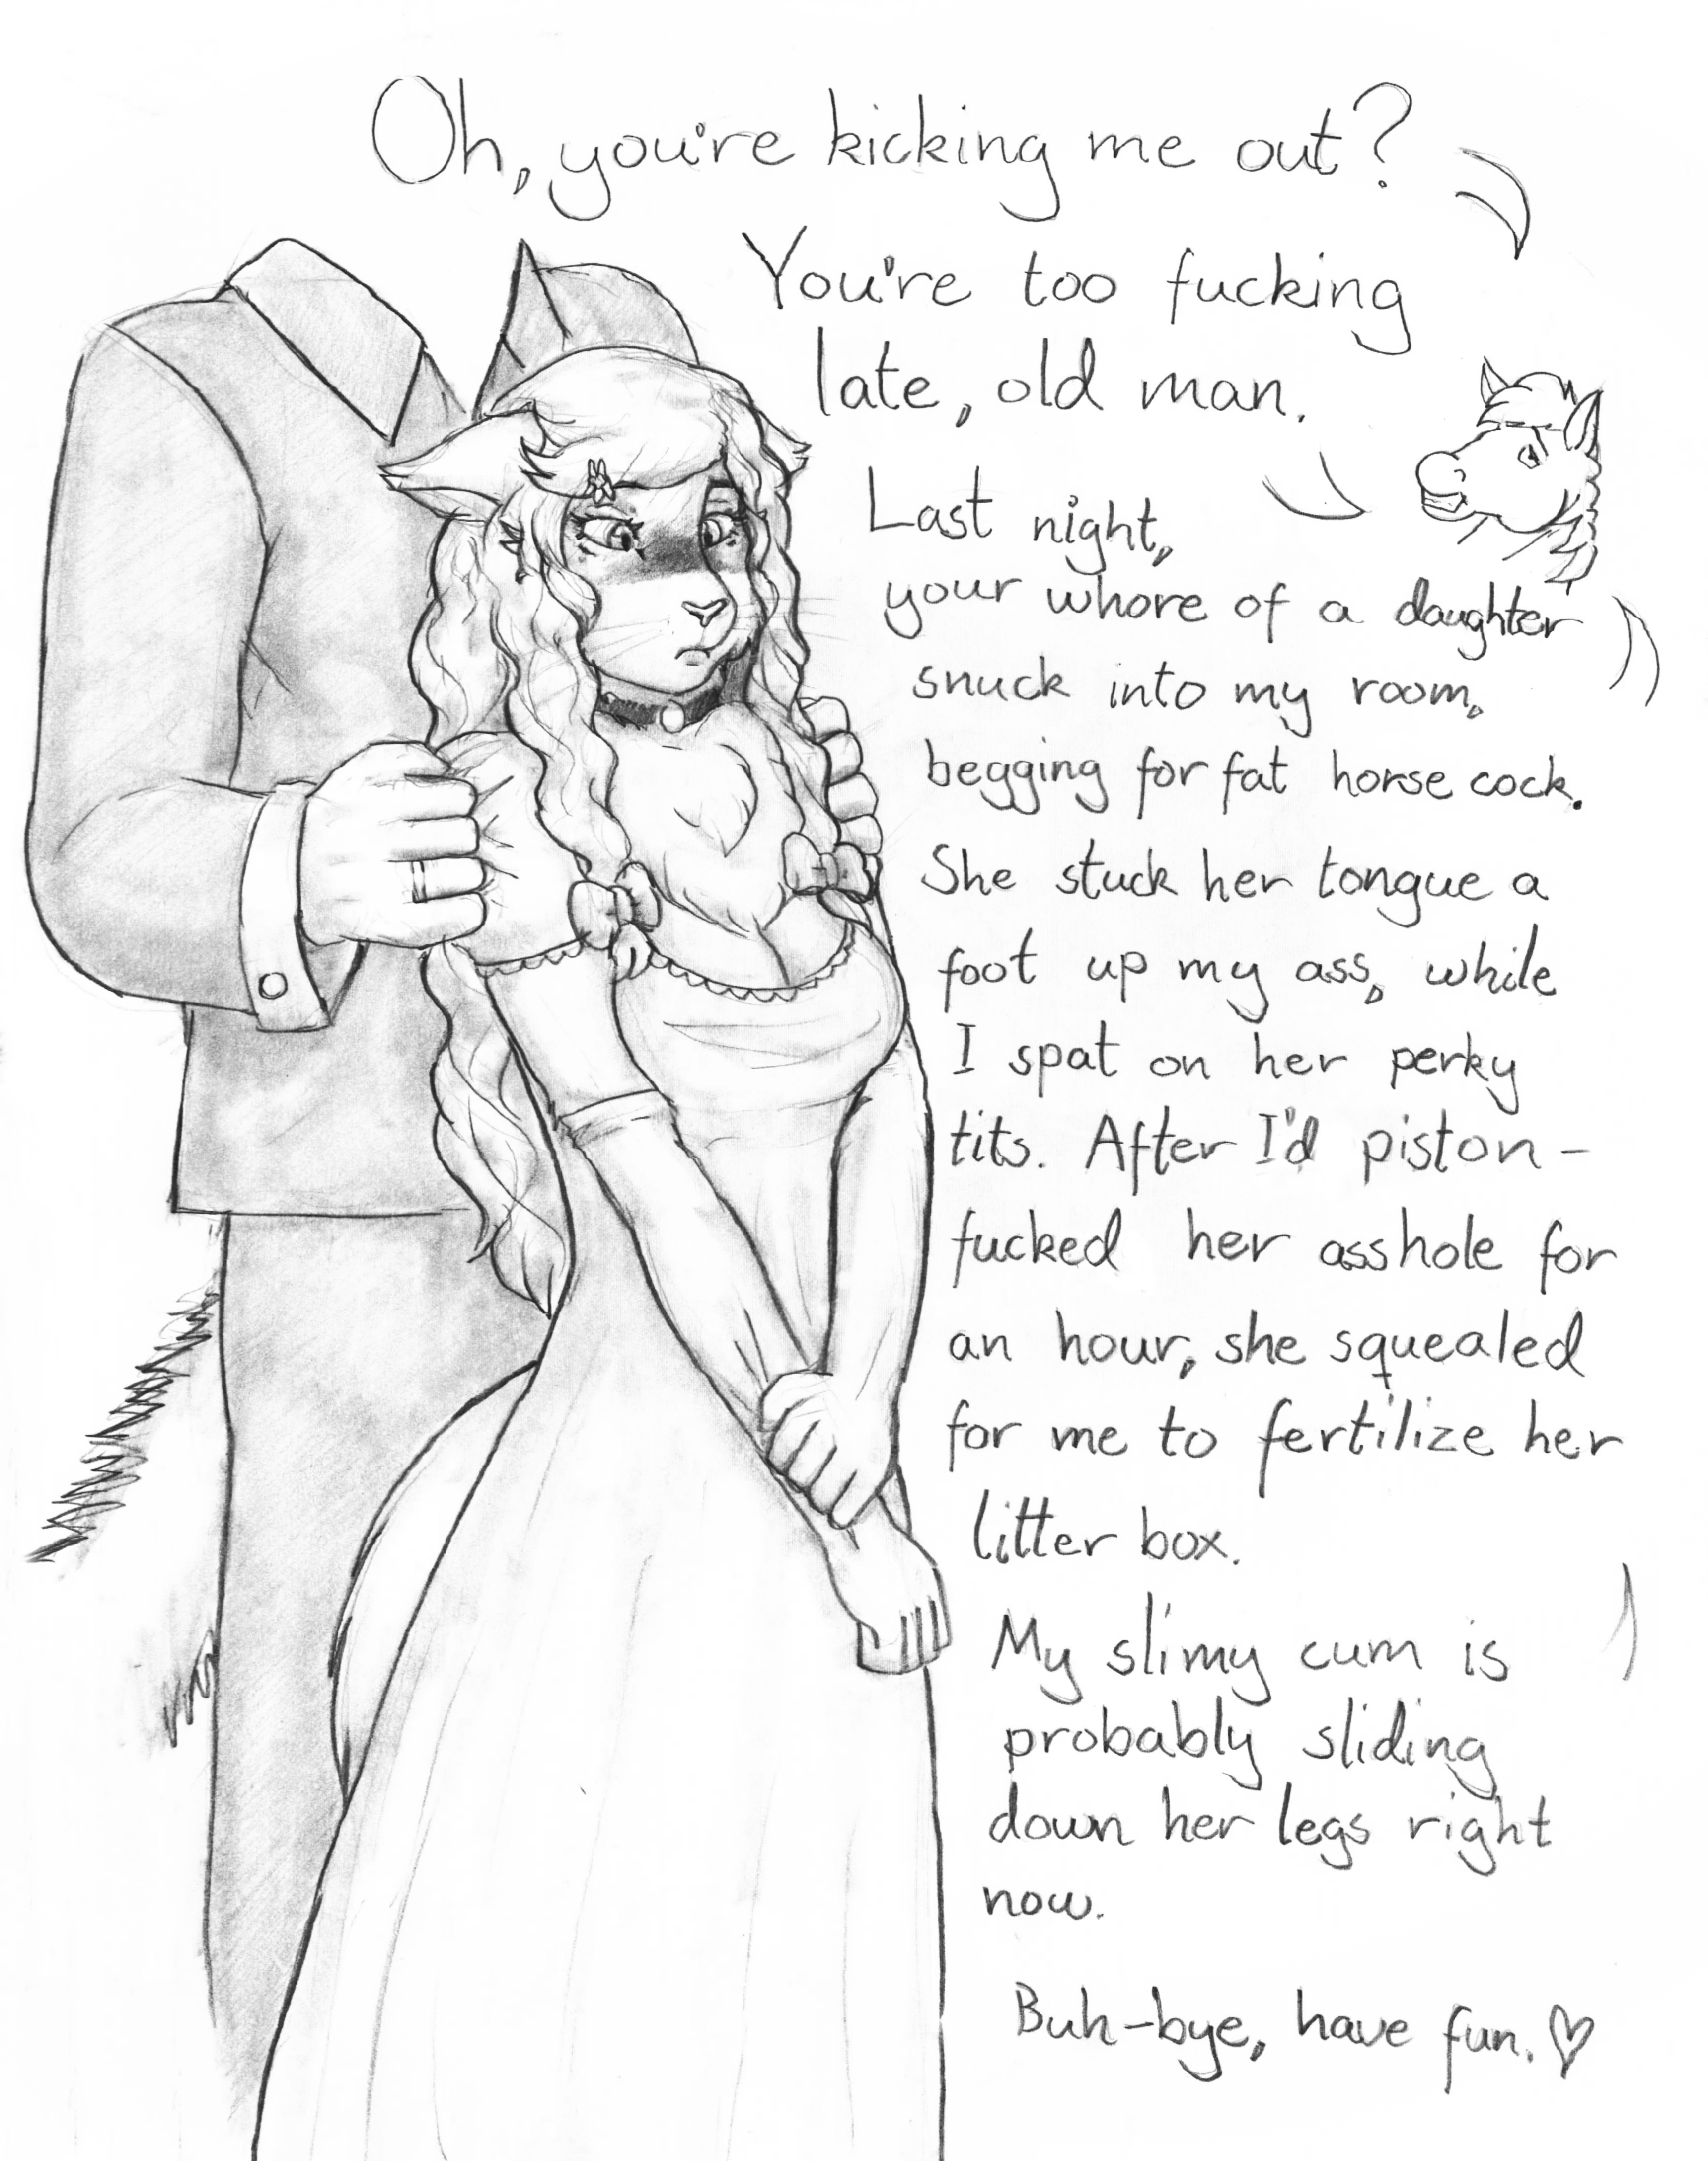 Oh, you're kicking me out?
You're too fucking
late, old man.
Last night,
your whore of a daughter
snuck into my room,
begging for fat horse cock.
She stuck her tongue a
foot up my ass, while
I spat on her perky
tits. After I'd piston-
fucked her asshole for
an hour, she squealed
for me to fertilize her
litter box.
My slimy cum is
probably sliding
down her legs right
now.
Buh-bye, have fun. ♡